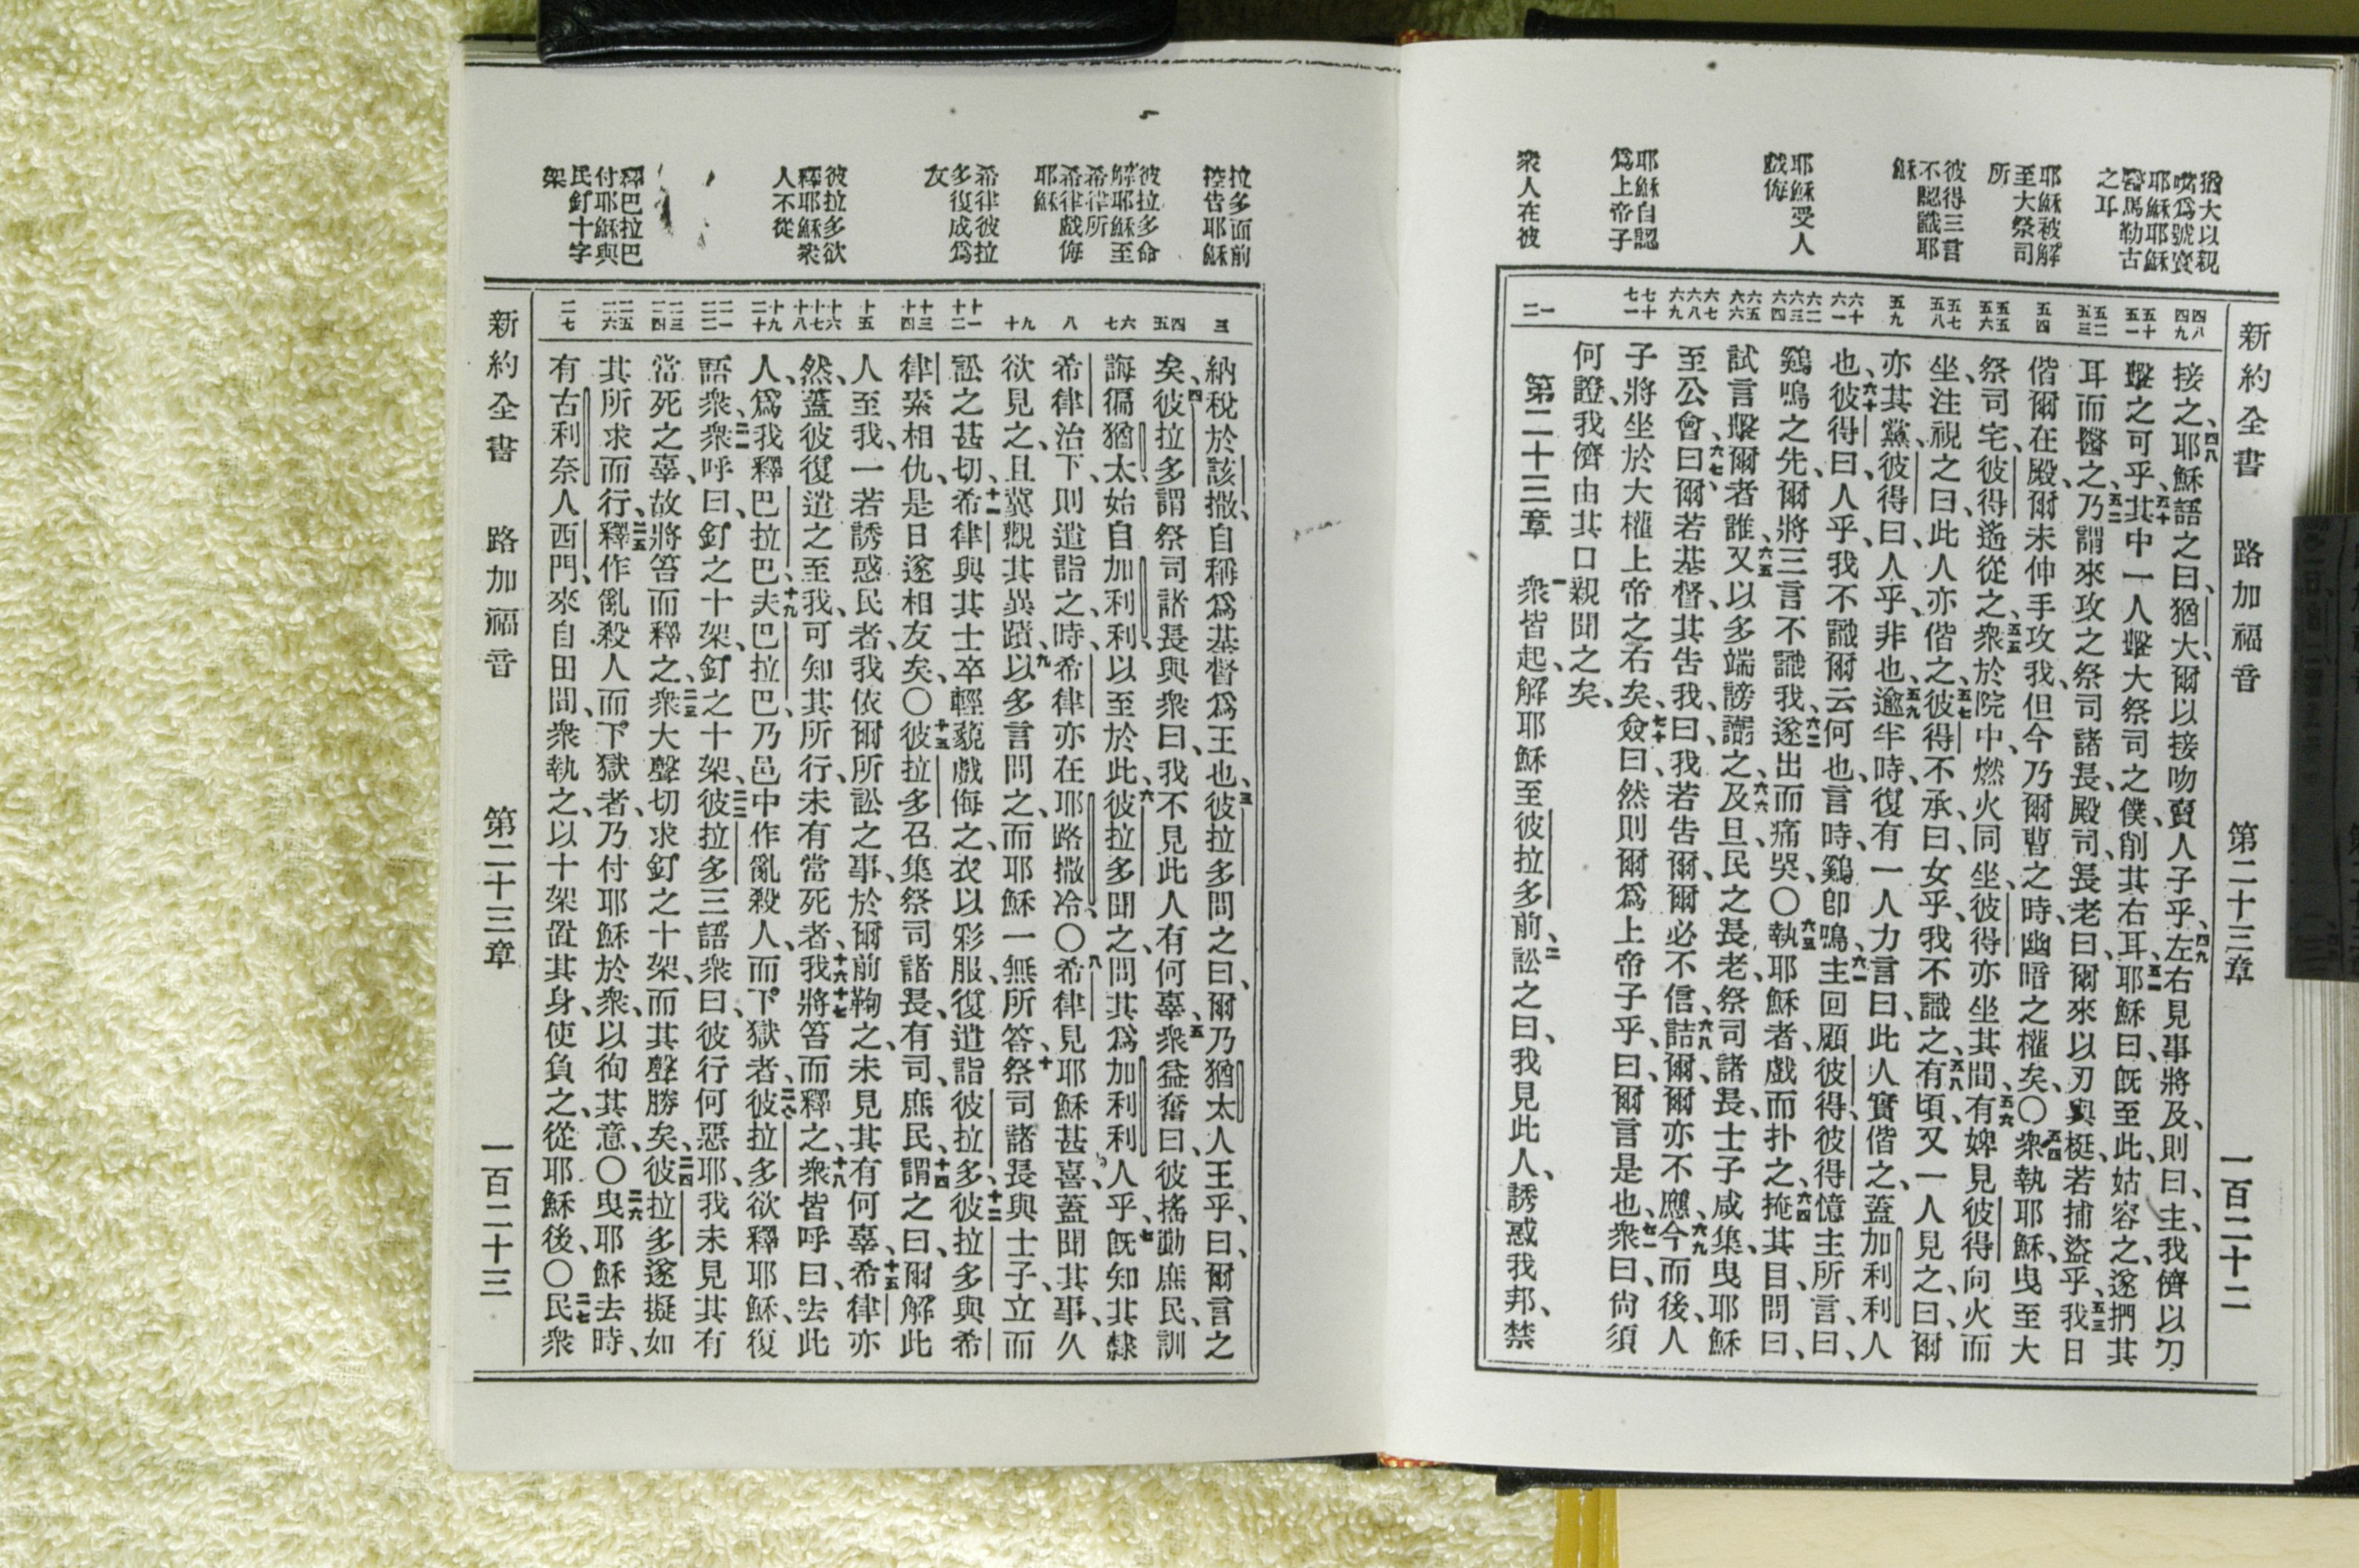 新約全書 路加福音 第二十三章 一百二十二
猶大以親
嘴爲號賣
耶穌耶穌
醫馬勒古
之耳
耶穌被解
至大祭司
所
彼得三言
不認識耶
穌
耶穌受人
戲侮
耶穌自認
爲上帝子
衆人在彼
四八 四九
五十 五一
五二 五三
五四
五五 五六
五七 五八
五九
六十 六一
六二 六三 六四
六五 六六
六七 六八 六九
七十 七一
一 二
接之、四八耶穌語之曰、猶大、爾以接吻賣人子乎、四九左右見事將及、則曰、主、我儕以刀
擊之可乎、五十其中一人擊大祭司之僕、削其右耳、五一耶穌曰、旣至此、姑容之、遂捫其
耳而醫之、五二乃謂來攻之祭司諸長、殿司、長老曰、爾來以刃與梃、若捕盜乎、五三我日
偕爾在殿、爾未伸手攻我、但今乃爾曹之時、幽暗之權矣、〇五四衆執耶穌、曳至大
祭司宅、彼得遙從之、五五衆於院中、燃火同坐、彼得亦坐其間、五六有婢見彼得向火而
坐、注視之曰、此人亦偕之、五七彼得不承曰、女乎、我不識之、五八有頃、又一人見之曰、爾
亦其黨、彼得曰、人乎、非也、五九逾半時、復有一人力言曰、此人實偕之、蓋加利利人
也、六十彼得曰、人乎、我不識爾云何也、言時、鷄卽鳴、六一主回顧彼得、彼得憶主所言曰、
鷄鳴之先、爾將三言不識我、六二遂出而痛哭、〇六三執耶穌者、戲而扑之、六四掩其目、問曰、
試言擊爾者誰、六五又以多端謗讟之、六六及旦、民之長老、祭司諸長、士子咸集、曳耶穌
至公會曰、六七爾若基督、其告我、曰、我若告爾、爾必不信、六八詰爾、爾亦不應、六九今而後、人
子將坐於大權上帝之右矣、七十僉曰、然則爾爲上帝子乎、曰、爾言是也、七一衆曰、尙須
何證、我儕由其口親聞之矣、
第二十三章 一衆皆起、解耶穌至彼拉多前、二訟之曰、我見此人、誘惑我邦、禁
拉多面前
控告耶穌
彼拉多命
解耶穌至
希律所
希律戲侮
耶穌
希律彼拉
多復成爲
友
彼拉多欲
釋耶穌衆
人不從
釋巴拉巴
付耶穌與
民釘十字
架
三
四 五
六 七
八
九 十
十一 十二
十三 十四
十五
十六 十七 十八
十九 二十
二一 二二
二三 二四
二五 二六
二七
納稅於該撒、自稱爲基督爲王也、三彼拉多問之曰、爾乃猶太人王乎、曰、爾言之
矣、四彼拉多謂祭司諸長與衆曰、我不見此人有何辜、五衆益奮曰、彼搖動庶民、訓
誨徧猶太、始自加利利、以至於此、六彼拉多聞之、問其爲加利利人乎、七旣知其隸
希律治下、則遣詣之、時希律亦在耶路撒冷、〇八希律見耶穌甚喜、蓋聞其事、久
欲見之、且冀觀其異蹟、九以多言問之、而耶穌一無所答、十祭司諸長與士子、立而
訟之甚切、十一希律與其士卒輕藐戲侮之、衣以彩服、復遣詣彼拉多、十二彼拉多與希
律素相仇、是日遂相友矣、〇十三彼拉多召集祭司諸長、有司、庶民、十四謂之曰、爾解此
人至我、一若誘惑民者、我依爾所訟之事、於爾前鞫之、未見其有何辜、十五希律亦
然、蓋彼復遣之至我、可知其所行、未有當死者、十六十七我將笞而釋之、十八衆皆呼曰、去此
人、爲我釋巴拉巴、十九夫巴拉巴、乃邑中作亂殺人、而下獄者、二十彼拉多欲釋耶穌、復
語衆、二一衆呼曰、釘之十架、釘之十架、二二彼拉多三語衆曰、彼行何惡耶、我未見其有
當死之辜、故將笞而釋之、二三衆大聲切求釘之十架、而其聲勝矣、二四彼拉多遂擬如
其所求而行、二五釋作亂殺人而下獄者、乃付耶穌於衆、以徇其意、〇二六曳耶穌去時、
有古利奈人西門、來自田間、衆執之、以十架置其身、使負之、從耶穌後、〇二七民衆
新約全書 路加福音 第二十三章 一百二十三